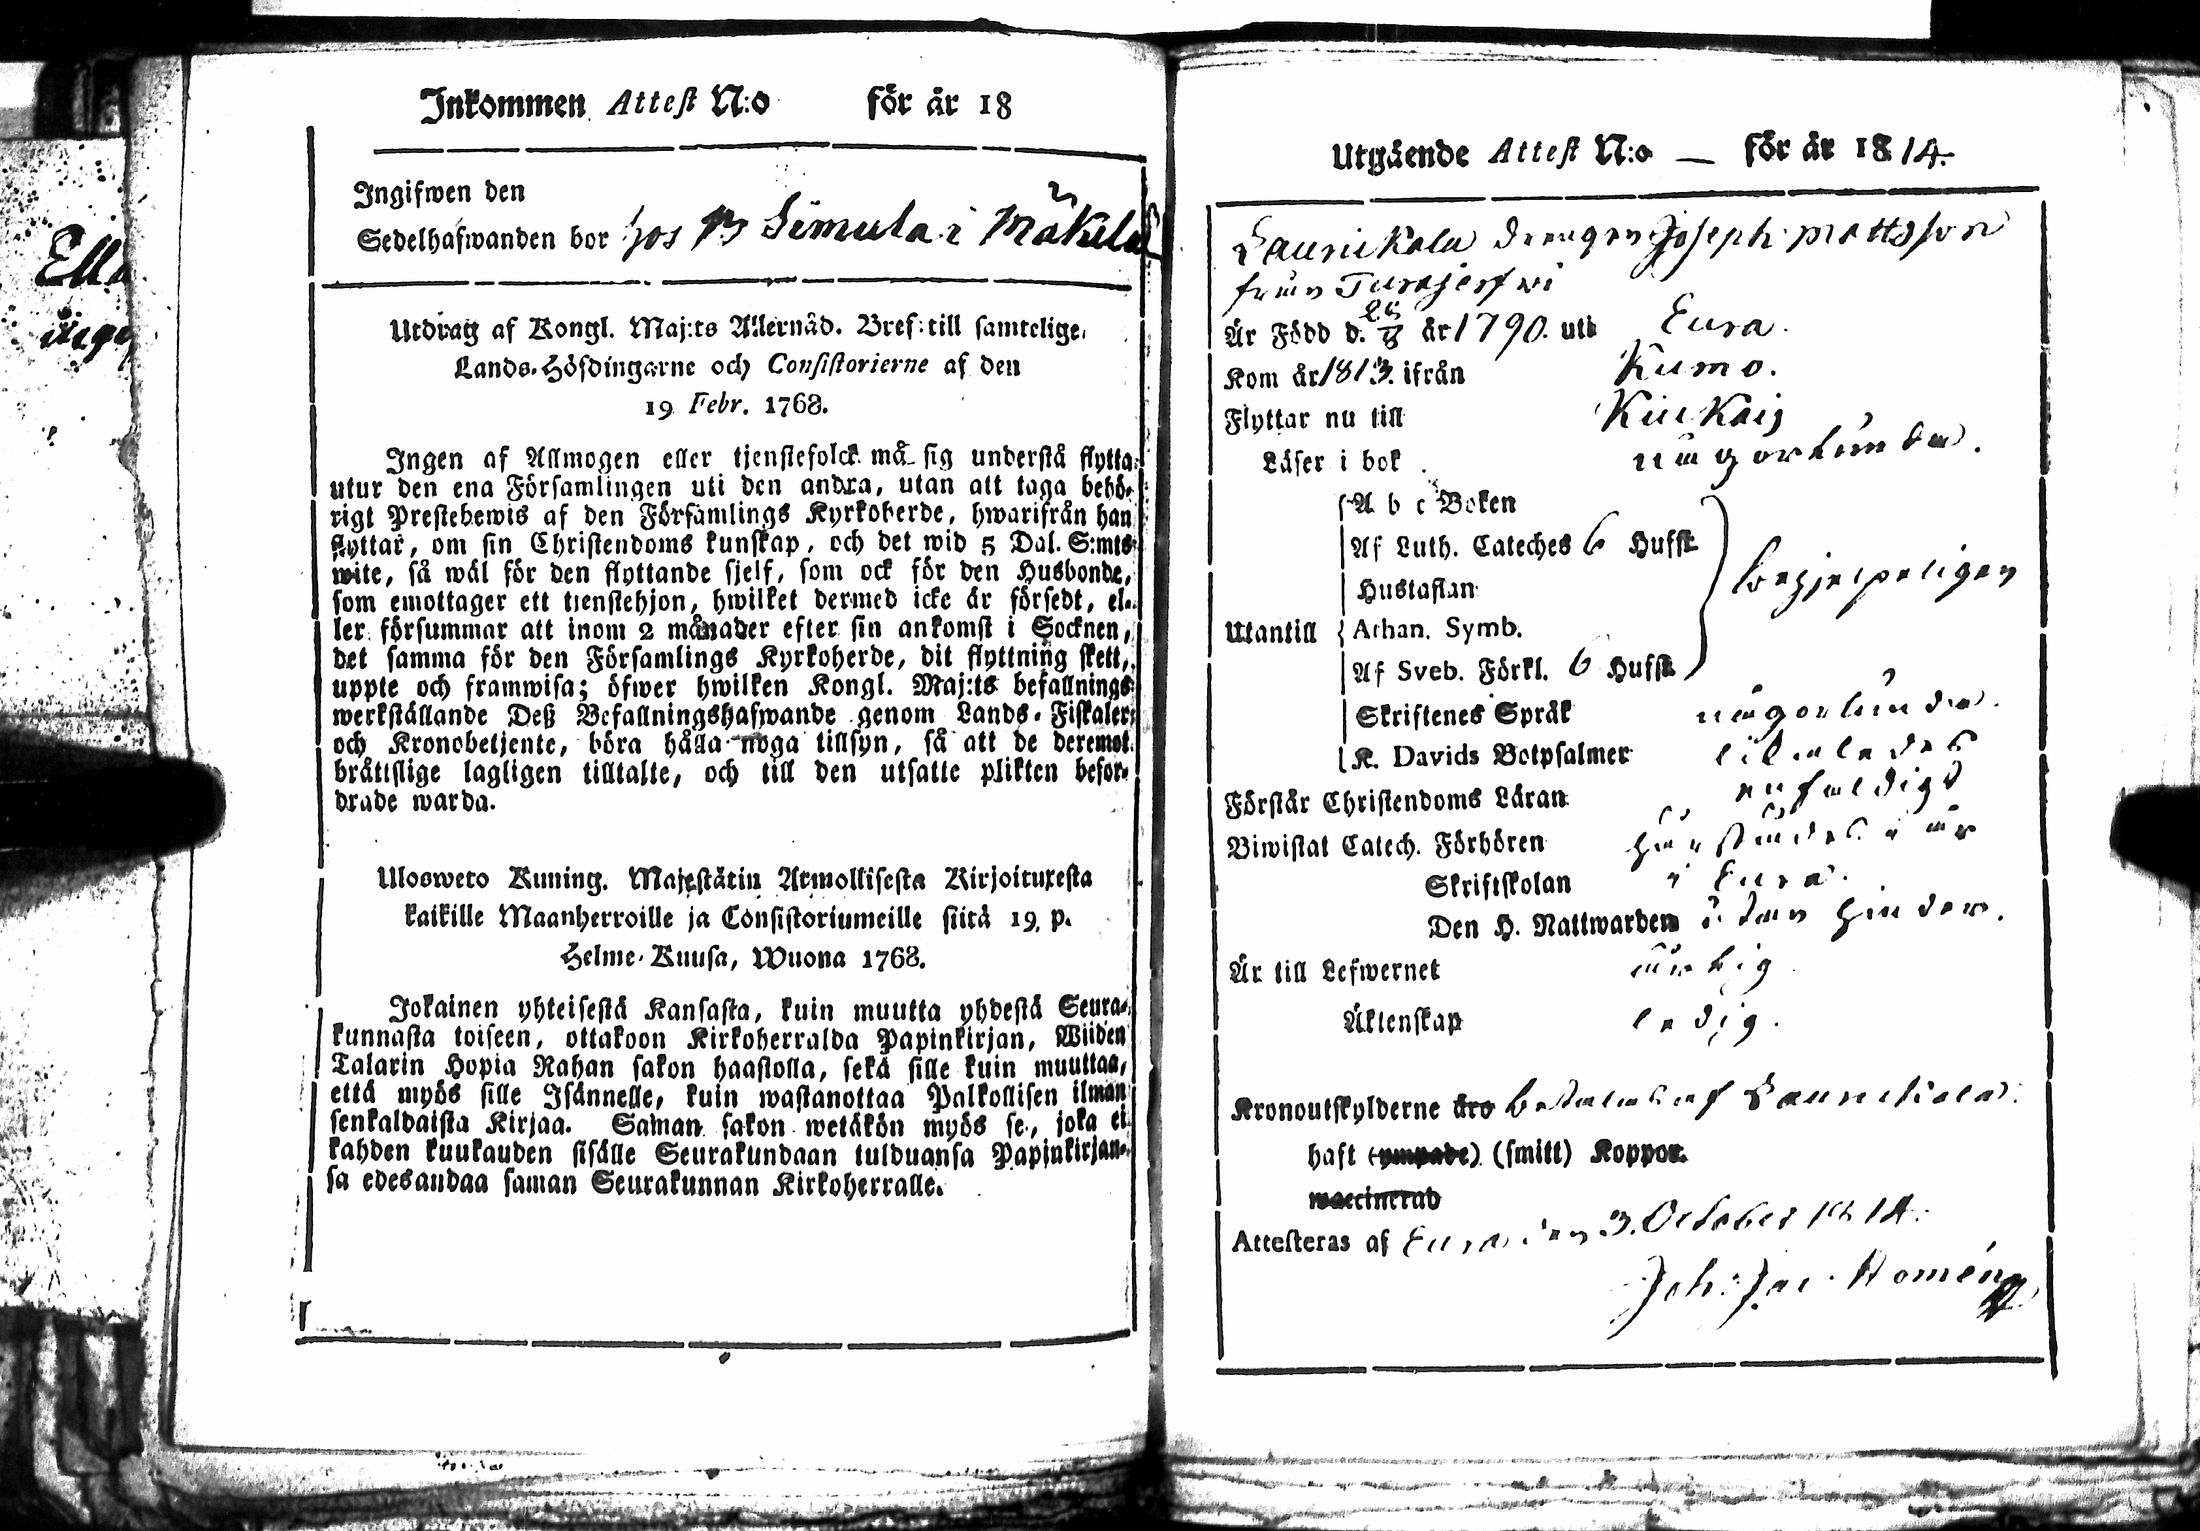 Inkommen Attest N:o för år 18
Ingifwen den
Sedelhafwanden bor hos Simula i Mäkilä
Utdrag af Kongl. Maj:ts Allernåd. Bref till samtelige
Lands-Höfdingarne och Consistorierne af den
19 Febr. 1768.
Ingen af Allmogen eller tjenstefolck må sig understå flytta
utur den ena Församlingen uti den andra, utan att taga behö-
rigt Prestebewis af den Församlings Kyrkoherde, hwarifrån han
flyttar, om sin Christendoms kunskap, och det wid 5 Dal. S:mts
wite, så wäl för den flyttande sjelf, som ock för den Husbonde,
som emottager ett tienstehjon, hwilket dermed icke är försedt, el-
ler försummar att inom 2 månader efter sin ankomst i Socknen,
det samma för den Församlings Kyrkoherde, dit flyttning skett,
uppte och framwisa; öfwer hwilken Kongl. Maj:ts befallnings
werkställande Deß Befallningshafwande genom Lands-Fiskaler
och Kronobetjente, böra hålla noga tillsyn, så att de deremot
bråttslige lagligen tilltalte, och till den utsatte plikten befor-
drade warda.
Ulosweto Kuning. Majestätin Armollisesta Kirjoituxesta
kaikille Maanherroille ja Consistoriumeille siitä 19. p.
Helme-Kuusa, Wuona 1768.
Jokainen yhteisestä Kansasta, kuin muutta yhdestä Seura-
kunnasta toiseen, ottakoon Kirkoherralda Papinkirjan, Wiiden
Talarin Hopia Rahan sakon haastolla, sekä sille kuin muuttaa,
että myös sille Isännelle, kuin wastanottaa Palkollisen ilman
senkaldaista Kirjaa. Saman sakon wetäkön myös se, joka ei
kahden kuukauden sisälle Seurakundaan tulduansa Papinkirjan-
sa edesandaa saman Seurakunnan Kirkoherralle.
Utgående Attest N:o — för år 1814.
Laurikala drengen Joseph Mattsson
från Turajerfwi
Är Född d. år 1790. uti Eura.
Kom år 1813. ifrån Kumo.
Flyttar nu till Kiukais
Läser i bok någorlunda.
A b c Boken
Af Luth. Cateches 6 Hufst.
Hustaflan
Utantill Athan. Symb.
Af Sveb. Förkl. 6 Hufst.
Skriftenes Språk någorlunda.
K. Davids Botpsalmer likaledes
Förstår Christendoms Läran enfaldigt
Biwistat Catech. Förhören härstädes i år
Skriftskolan i Eura.
Den H. Nattwarden utan hinder.
Är till Lefwernet ärlig
Äktenskap ledig.
Kronoutskylderne äro betalas af Laurikala.
haft (ympade) (smitt) Koppor.
waccinerad
Attesteras af Eura den 3. October 1814.
Joh: Jac. Homén